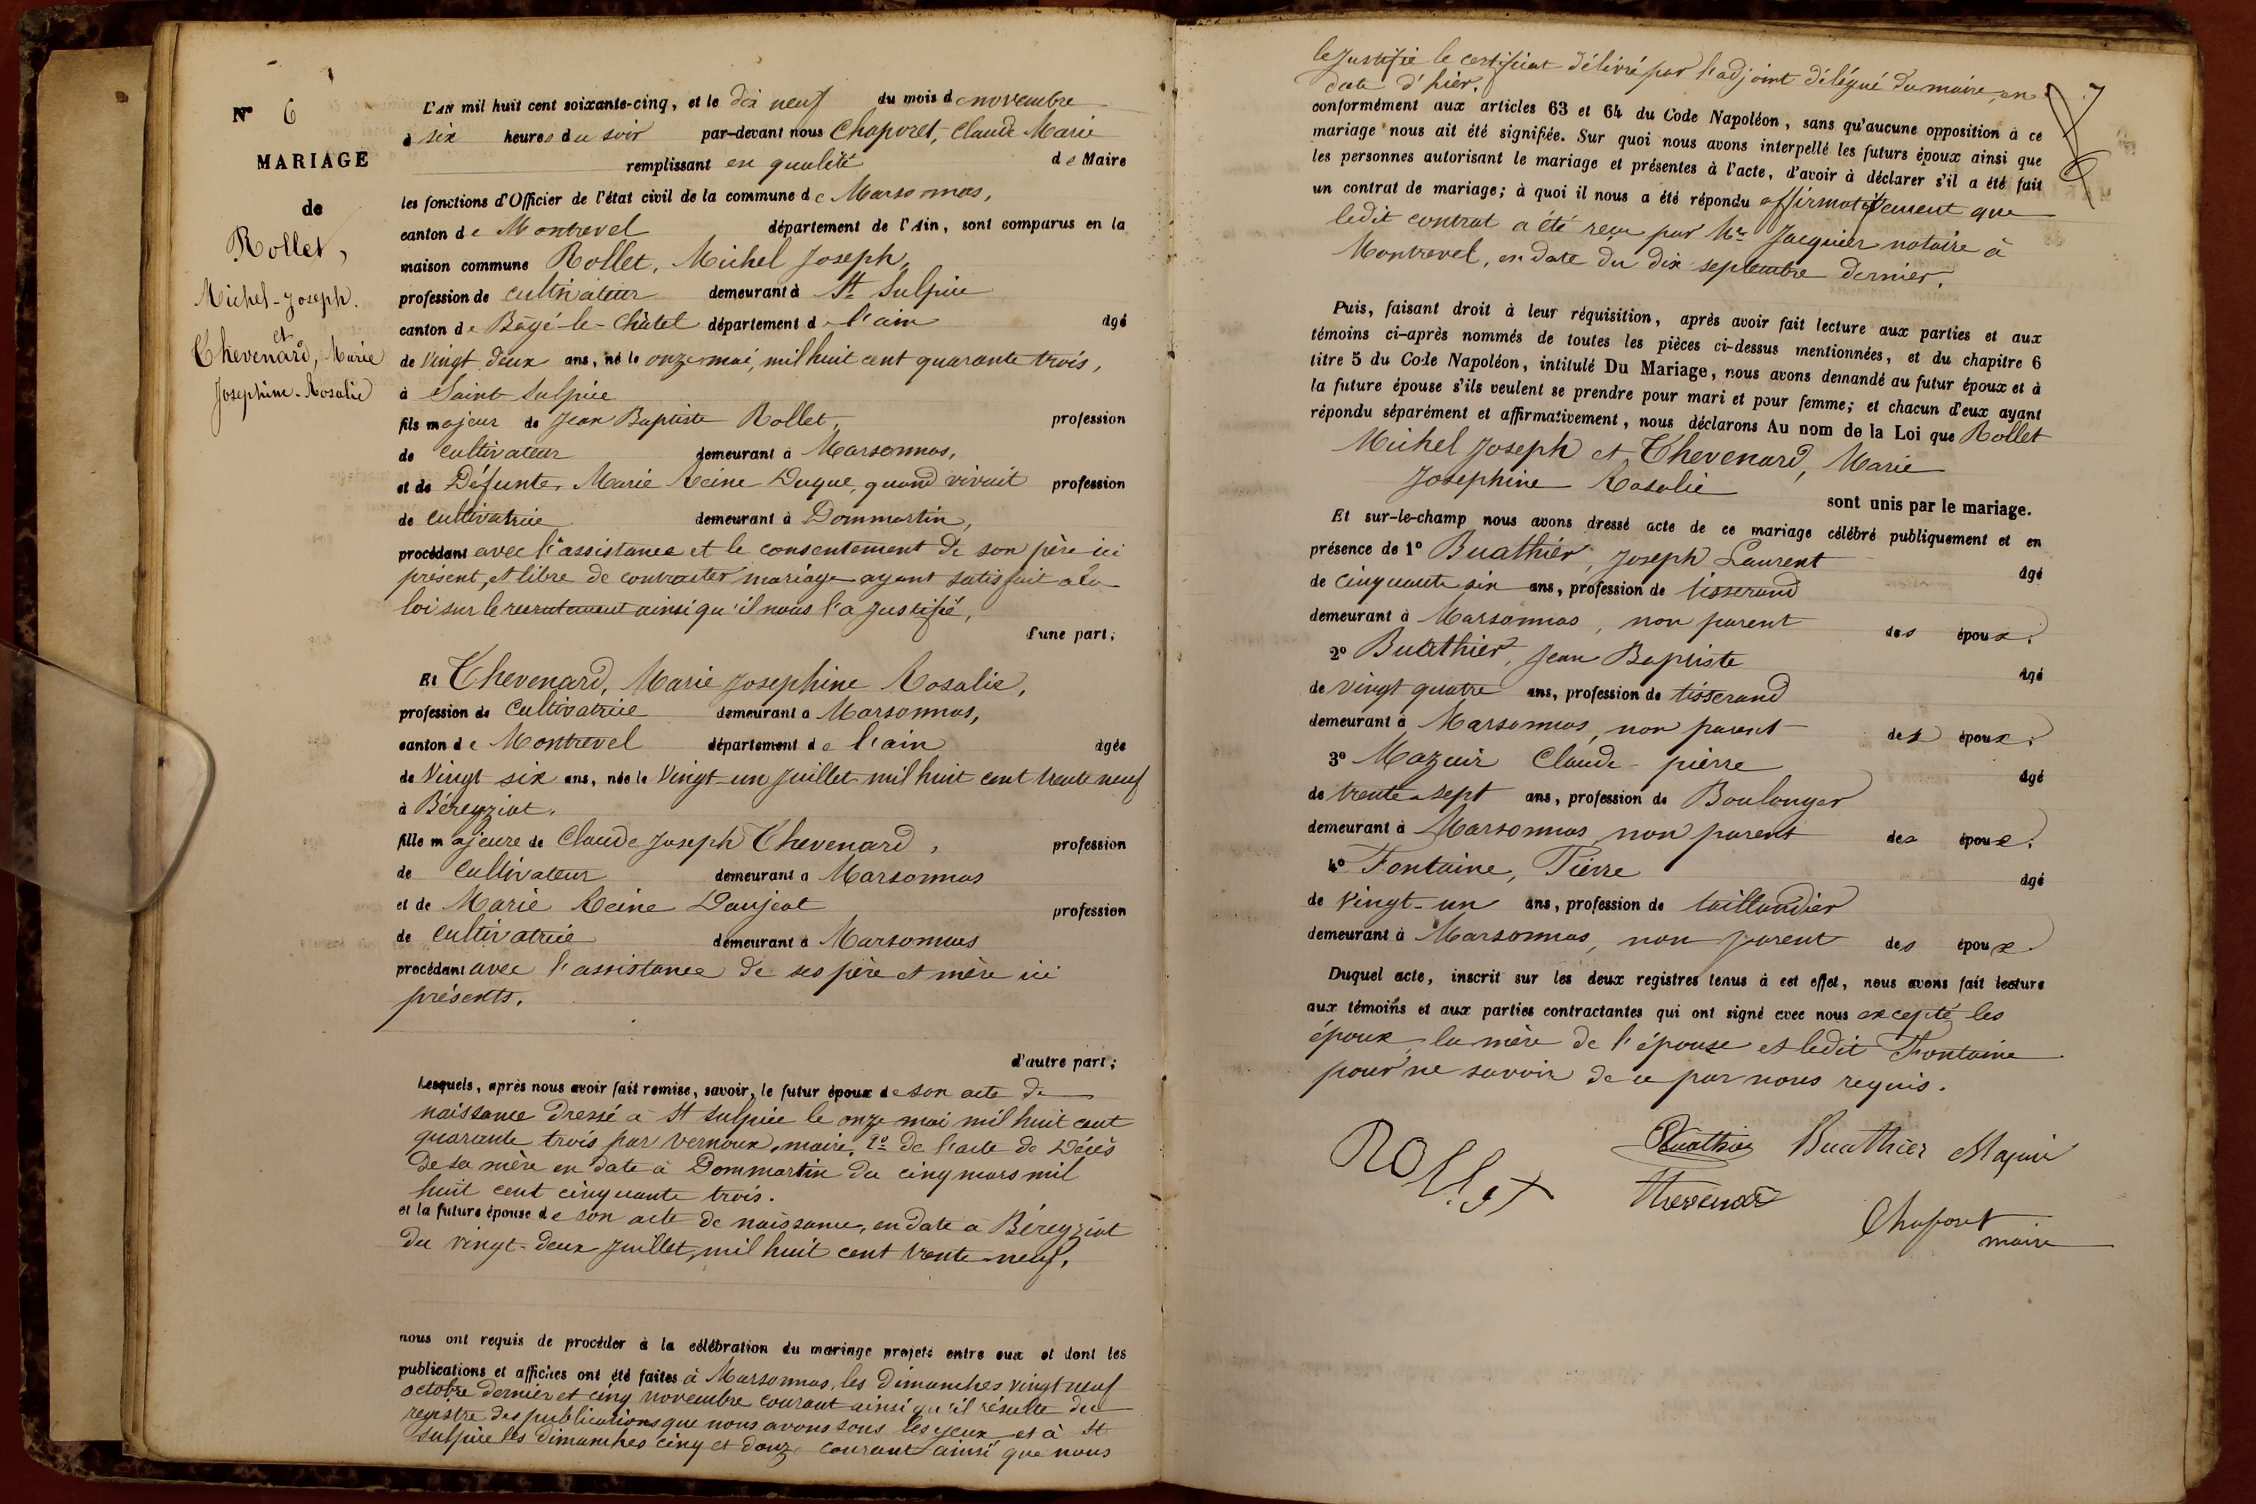 N° 6
MARIAGE
de
Rollet,
Michel-Joseph.
et
Thevenard, Marie
Josephine-Rosalie
L'AN mil huit cent soixante-cinq, et le dix neuf du mois de novembre
à six heures du soir par-devant nous Chaponet, Claude Marie
remplissant en qualité de Maire
les fonctions d'Officier de l'état civil de la commune de Marsonnas,
canton de Montrevel département de l'Ain, sont comparus en la
maison commune Rollet, Michel Joseph,
profession de cultivateur demeurant à St Sulpice
canton de Bâgé-le-Châtel département de l'ain âgé
de vingt deux ans, né le onze mai, mil huit cent quarante trois,
à Saint Sulpice
fils majeur de Jean Baptiste Rollet, profession
de cultivateur demeurant à Marsonnas,
et de Défunte, Marie Reine Duque, quand vivait profession
de cultivatrice demeurant à Dommartin,
procédant avec l'assistance et le consentement de son père ici
présent, et libre de contracter mariage ayant satisfait a la
loi sur le recrutement ainsi qu'il nous l'a justifié,
d'une part;
Et Thevenard, Marie Josephine Rosalie,
profession de cultivatrice demeurant à Marsonnas,
canton de Montrevel département de l'ain âgée
de Vingt six ans, née le Vingt-un Juillet mil huit cent trente neuf
à Béreyziat.
fille majeure de Claude Joseph Thevenard, profession
de cultivateur demeurant à Marsonnas
et de Marie Reine Daujeat profession
de cultivatrice demeurant à Marsonnas
procédant avec l'assistance de ses père et mère ici
présents.
d'autre part;
Lesquels, après nous avoir fait remise, savoir, le futur époux de son acte de
naissance dressé à St Sulpice le onze mai mil huit cent
quarante trois par Vernoux, maire, 2° de l'acte de Décès
de sa mère en date à Dommartin du cinq mars mil
huit cent cinquante trois.
et la future épouse de son acte de naissance, en date à Béreyziat
du vingt-deux Juillet, mil huit cent trente-neuf.
nous ont requis de procéder à la célébration du mariage projeté entre eux et dont les
publications et affiches ont été faites à Marsonnas, les dimanches vingt neuf
octobre dernier et cinq novembre courant ainsi qu'il résulte du
registre des publications que nous avons sous les yeux et à St
Sulpice les dimanches cinq et douze courant ainsi que nous
le justifie le certificat délivré par l'adjoint délégué du maire, en
date d'hier.
conformément aux articles 63 et 64 du Code Napoléon, sans qu'aucune opposition à ce
mariage nous ait été signifiée. Sur quoi nous avons interpellé les futurs époux ainsi que
les personnes autorisant le mariage et présentes à l'acte, d'avoir à déclarer s'il a été fait
un contrat de mariage; à quoi il nous a été répondu affirmativement que
ledit contrat a été reçu par Me Jacquier notaire à
Montrevel, en date du dix septembre dernier.
Puis, faisant droit à leur réquisition, après avoir fait lecture aux parties et aux
témoins ci-après nommés de toutes les pièces ci-dessus mentionnées, et du chapitre 6
titre 5 du Code Napoléon, intitulé Du Mariage, nous avons demandé au futur époux et à
la future épouse s'ils veulent se prendre pour mari et pour femme; et chacun d'eux ayant
répondu séparément et affirmativement, nous déclarons Au nom de la Loi que Rollet
Michel Joseph et Thevenard, Marie
Josephine Rosalie sont unis par le mariage.
Et sur-le-champ nous avons dressé acte de ce mariage célébré publiquement et en
présence de 1° Buathier, Joseph Laurent âgé
de cinquante six ans, profession de tisserand
demeurant à Marsonnas, non parent des époux.
2° Buathier, Jean Baptiste âgé
de vingt quatre ans, profession de tisserand
demeurant à Marsonnas, non parent des époux.
3° Mazuir Claude-pierre âgé
de trente-sept ans, profession de Boulanger
demeurant à Marsonnas non parent des époux.
4° Fontaine, Pierre âgé
de vingt-un ans, profession de taillandier
demeurant à Marsonnas, non parent des époux
Duquel acte, inscrit sur les deux registres tenus à cet effet, nous avons fait lecture
aux témoins et aux parties contractantes qui ont signé avec nous excepté les
époux, la mère de l'épouse et ledit Fontaine
pour ne savoir de ce par nous requis.
Rollet
Buathier Buathier Mazuir
Thevenard
Chaponet
maire